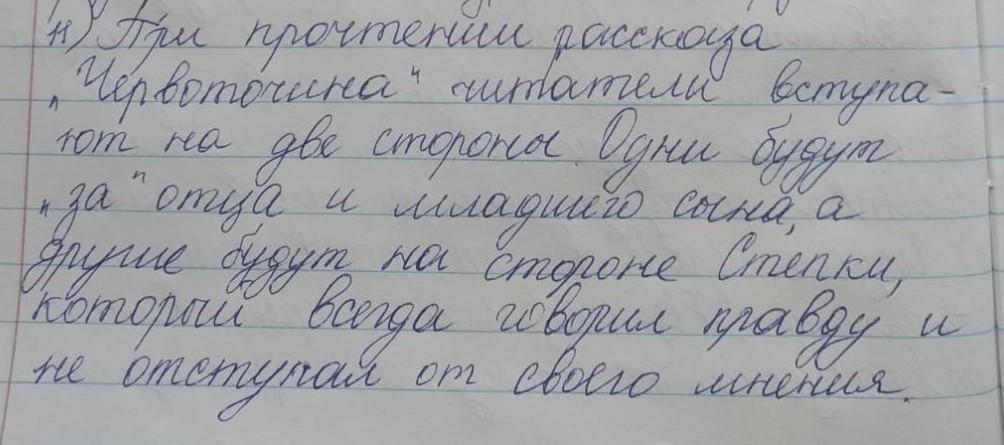 н) При прочтении рассказа
„Червоточина" читатели вступа-
ют на две стороны. Одни будут
„за" отца и младшего сына, а
другие будут на стороне Степки,
который всегда говорил правду и
не отступал от своего мнения.